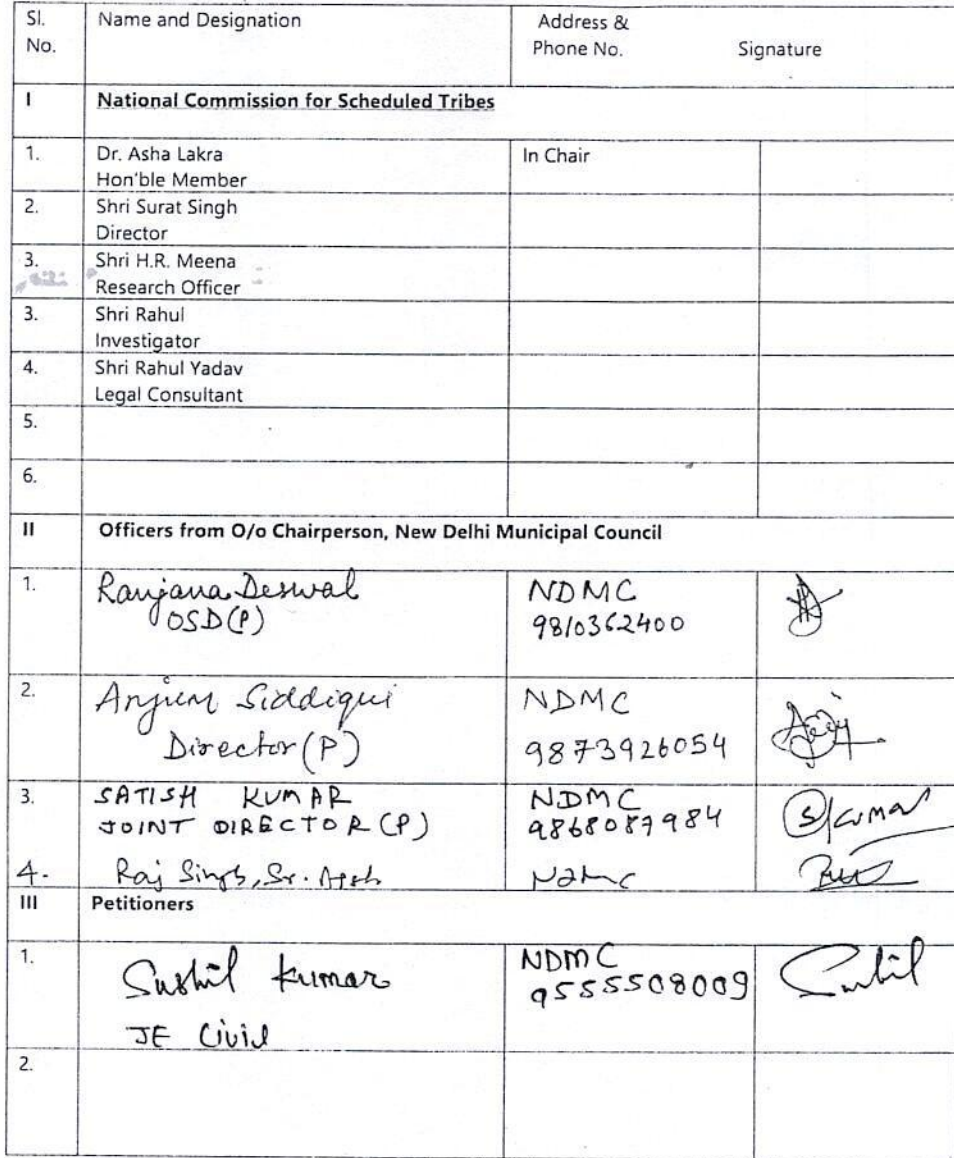 Sl. No.
Name and Designation
Address & Phone No.
Signature
I
National Commission for Scheduled Tribes
1.
Dr. Asha Lakra
Hon'ble Member
In Chair
2.
Shri Surat Singh
Director
3.
Shri H.R. Meena
Research Officer
3.
Shri Rahul
Investigator
4.
Shri Rahul Yadav
Legal Consultant
5.
6.
II
Officers from O/o Chairperson, New Delhi Municipal Council
1.
Ranjana Deswal
OSD(P)
NDMC
9810362400
2.
Anjum Siddiqui
Director(P)
NDMC
9873926054
3.
SATISH KUMAR
JOINT DIRECTOR (P)
NDMC
9868087984
S/Kumar
4.
Raj Singh, Sr. Asstt
NDMC
III
Petitioners
1.
Sushil Kumar
JE Civil
NDMC
9555508009
Sushil
2.